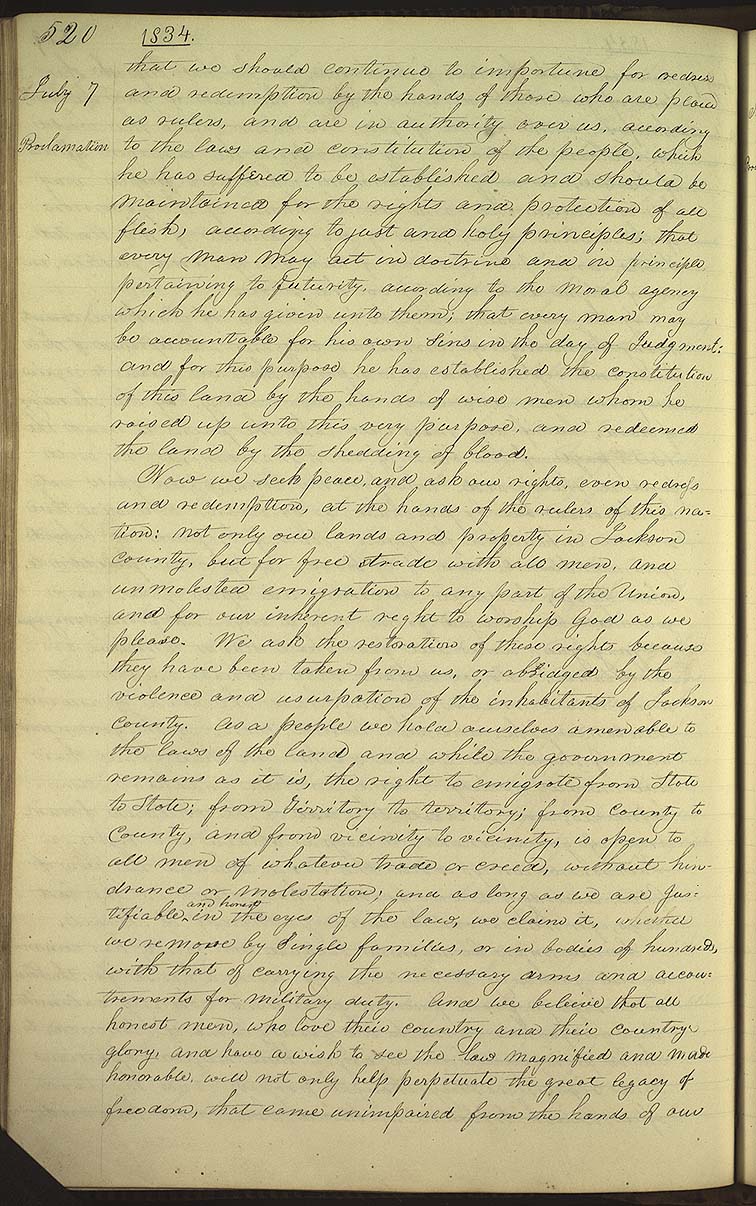 520
1834.
July 7
Proclamation
that we should continue to importune for redress
and redemption by the hands of those who are placed
as rulers, and are in authority over us, according
to the laws and constitution of the people, which
he has suffered to be established and should be
maintained for the rights and protection of all
flesh, according to just and holy principles; that
every man may act in doctrine and in principle
pertaining to futurity, according to the moral agency
which he has given unto them; that every man may
be accountable for his own sins in the day of Judgment:
and for this purpose he has established the constitution
of this land by the hands of wise men whom he
raised up unto this very purpose, and redeemed
the land by the shedding of blood.
Now we seek peace, and ask our rights, even redress
and redemption, at the hands of the rulers of this na=
tion: not only our lands and property in Jackson
County, but for free trade with all men, and
unmolested emigration to any part of the Union,
and for our inherent right to worship God as we
please. We ask the restoration of these rights because
they have been taken from us, or abridged by the
violence and usurpation of the inhabitants of Jackson
County. As a people we hold ourselves amenable to
the laws of the land and while the government
remains as it is, the right to emigrate from State
to State; from Territory to territory; from County to
County, and from vicinity to vicinity, is open to
all men of whatever trade or creed, without hin-
drance or molestation; and as long as we are jus=
tifiable and honest in the eyes of the law, we claim it, whether
we remove by single families, or in bodies of hundreds,
with that of carrying the necessary arms and accou=
trements for military duty. And we beleive that all
honest men, who love their country and their country's
glory, and have a wish to see the law magnified and made
honorable, will not only help perpetuate the great legacy of
freedom, that came unimpaired from the hands of our